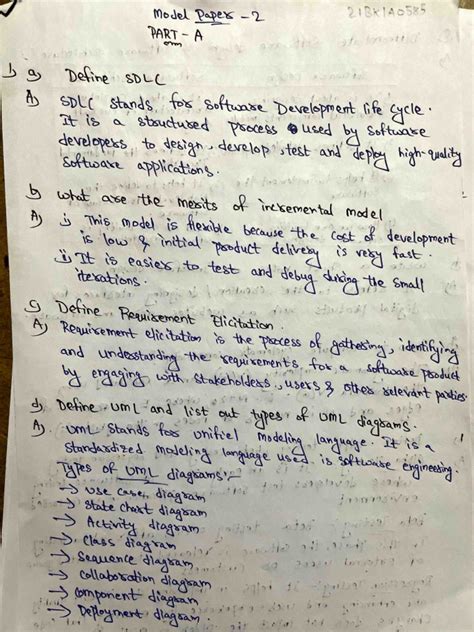 Model Paper - 2
21BK1A0585
PART - A
1) a) Define SDLC
A) SDLC stands for Software Development life cycle.
It is a structured process used by software
developers to design, develop, test and deploy high-quality
software applications.
b) what are the merits of incremental model
A) i) This model is flexible because the cost of development
is low & initial product delivery is very fast.
ii) It is easier to test and debug during the small
iterations.
c) Define Requirement Elicitation.
A) Requirement elicitation is the process of gathering, identifying
and understanding the requirements for a software product
by engaging with stakeholders, users & other relevant parties.
d) Define UML and list out types of UML diagrams.
A) UML stands for unifiel modeling language. It is a
standardized modeling language used is software engineering.
Types of UML diagrams:-
→ use case diagram
→ State chart diagram
→ Activity diagram
→ class diagram
→ Sequence diagram
→ Collaboration diagram
→ Component diagram
→ Deployment diagram.